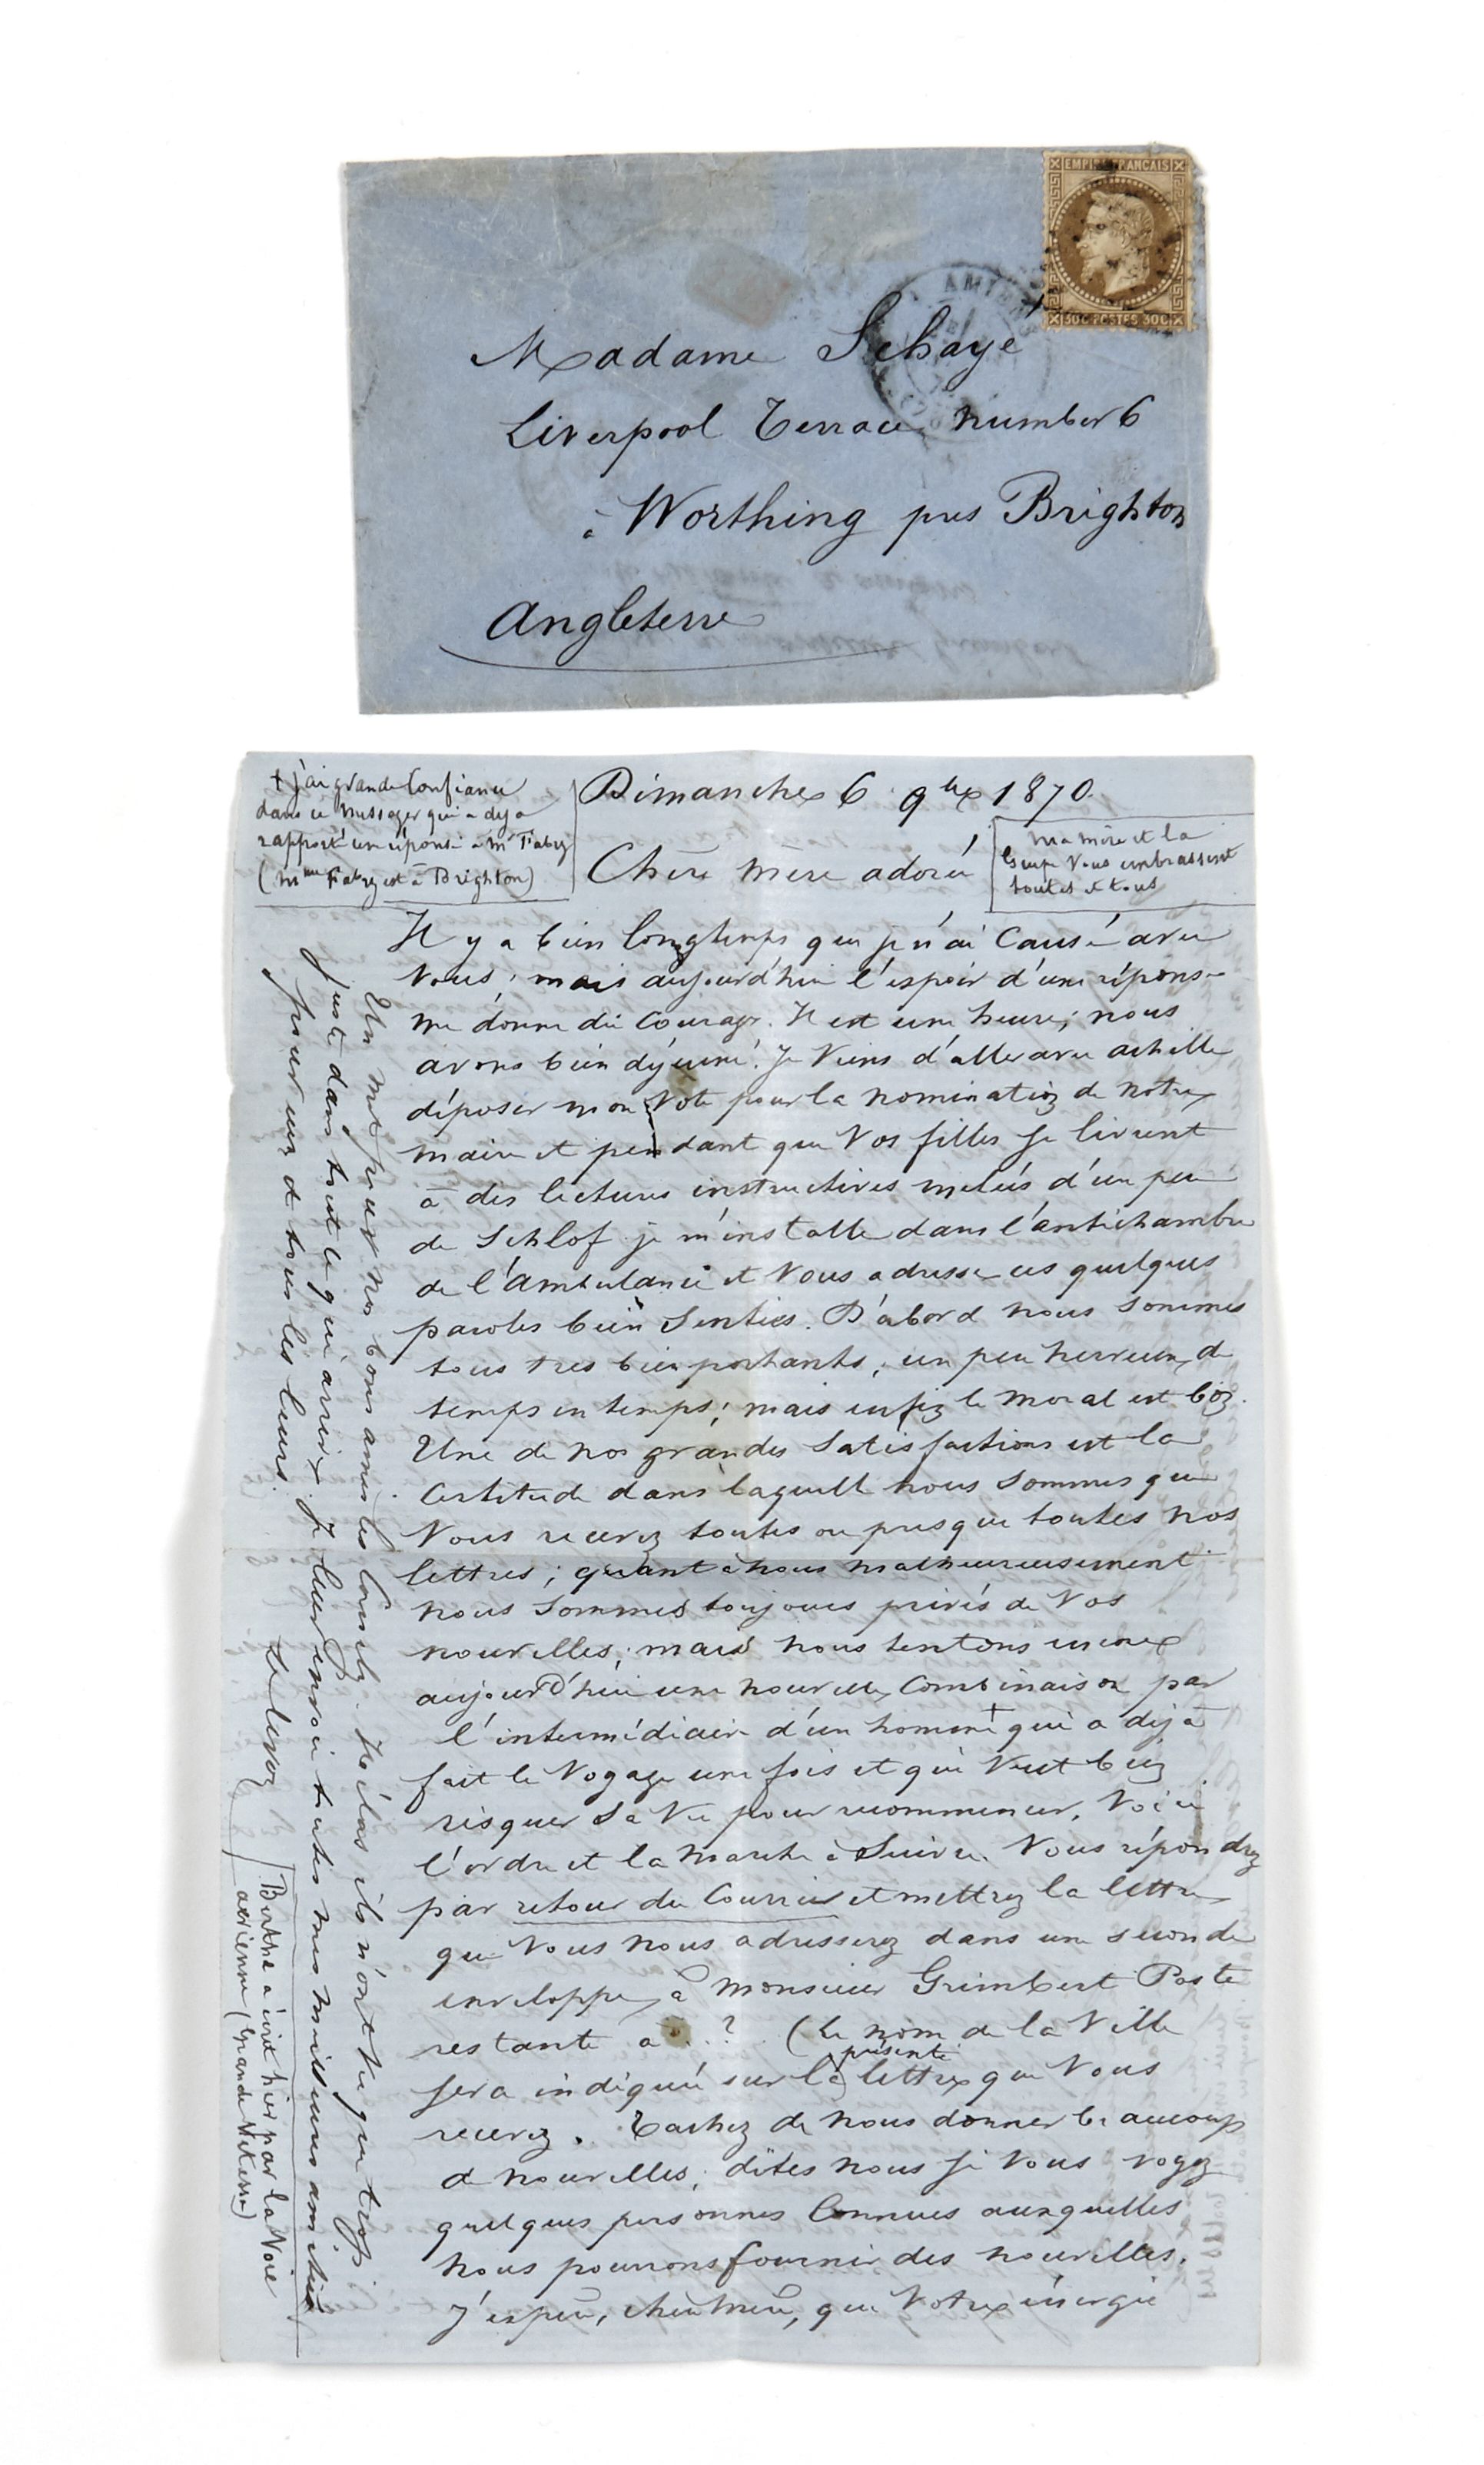 EMPIRE FRANÇAIS
30C POSTES 30C
AMIENS
Madame Schayé
Liverpool Terrace number 6
à Worthing pres Brighton
Angleterre
+ j'ai grande Confiance
dans ce messager qui a deja
rapporté une réponse à Mr Fabry
(Mme Fabry est à Brighton)
Dimanche 6 9bre 1870
ma mère et la
Vous embrassent
toutes et tous
Chère mère adorée
Il y a bien longtemps que je n'ai Causé avec
Vous, mais aujourd'hui l'espoir d'une réponse
me donne du Courage. Il est une heure; nous
avons bien déjeuné. Je Viens d'aller avec achille
déposer mon Vote pour la nomination de notre
maire et pendant que Vos filles se livrent
à des lectures instructives melées d'un peu
de Schlof je m'installe dans l'antichambre
de l'Ambulance et Vous adresse ces quelques
paroles bien Senties. D'abord nous sommes
tous tres bien portants, un peu nerveux de
temps en temps; mais enfin le moral est bon.
Une de nos grandes Satisfactions est la
Certitude dans laquelle nous sommes que
Vous recevez toutes ou presque toutes nos
lettres; quant à nous malheureusement
nous sommes toujours privés de Vos
nouvelles; mais nous tentons encore
aujourd'hui une nouvelle Combinaison par
l'intermédiaire d'un homme + qui a dejà
fait le Voyage une fois et qui Veut bien
risquer sa Vie pour recommencer. Voici
l'ordre et la Marche à Suivre. Vous répondrez
par retour du Courrier et mettrez la lettre
que Vous nous adresserez dans une seconde
enveloppe à Monsieur Grimbert Poste
restante à ..? (Le nom de la Ville
sera indiqué sur la présente lettre que Vous
recevez. Tachez de nous donner beaucoup
de nouvelles; dites nous si Vous voyez
quelques personnes Connues auxquelles
nous pourrons fournir des nouvelles.
J'espère, chère mère, que Votre énergie
pour nos bons amis les Cornely. Hélas ils n'ont vu que trop
juste dans tout ce qui arrive. Je leur envoie toutes mes meilleures amitiés
pour eux et tous les leurs.
Berthe a écrit hier par la Voie
aerienne (Grande Vitesse)